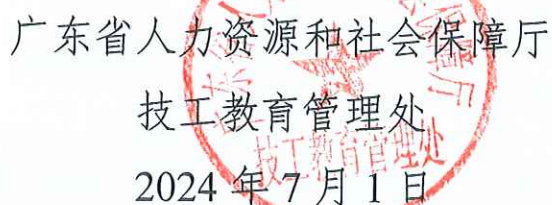 广东省人力资源和社会保障厅
技工教育管理处
2024年7月1日
技工教育管理处